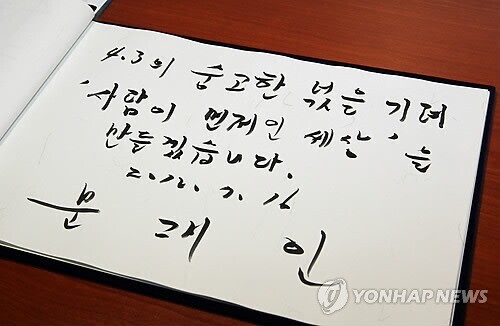 4.3의 숭고한 넋을 기려
'사람이 먼저인 세상'을
만들겠습니다.
2012. 7. 16
문재인
YONHAP NEWS